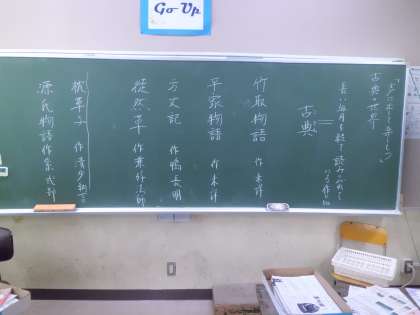 Go Up
「声に出して楽しもう」
古典の世界
長い年月を経て読みつがれて
いる作品
=
古典
竹取物語 作 未詳
平家物語 作 未詳
方丈記 作 鴨長明
徒然草 作 兼好法師
枕草子 作 清少納言
源氏物語 作 紫式部